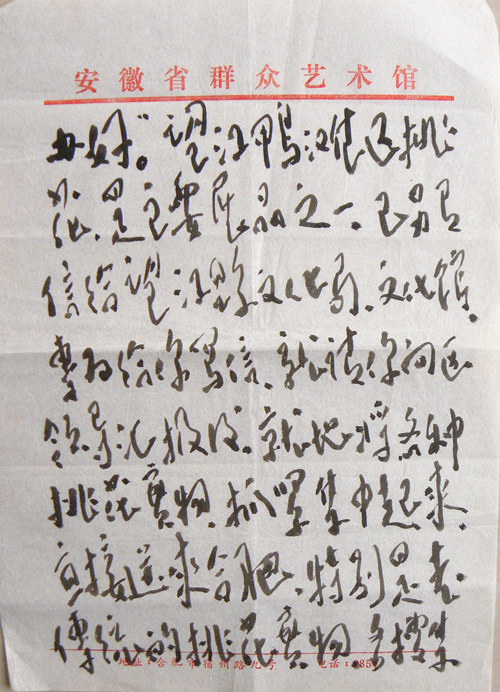 安徽省群众艺术馆
好"。望江挑
花、是主要展品之一。已另
信给望江县文化局、文化馆,
给你写信,就请你向区
领导汇报后,就地将各种
挑花实物,抓紧集中起来,
直接送来合肥,特别是老
传统的挑花实物多搜集
地址:合肥市宿州路九号 电话: